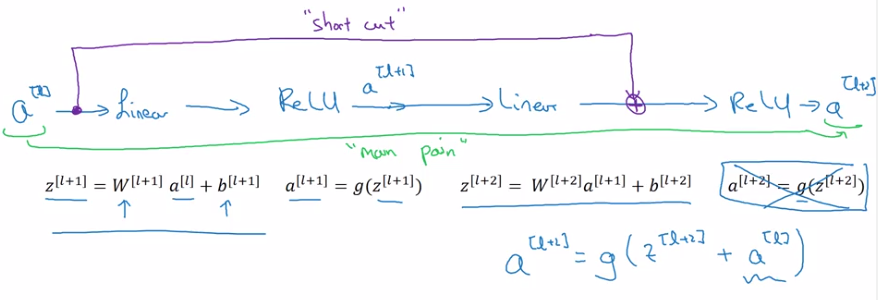 "short cut"
a^[l] → Linear → ReLU a^[l+1] → Linear → ⊕ → ReLU → a^[l+2]
"main pain"
z^[l+1] = W^[l+1] a^[l] + b^[l+1] a^[l+1] = g(z^[l+1]) z^[l+2] = W^[l+2]a^[l+1] + b^[l+2] a^[l+2] = g(z^[l+2])
a^[l+2] = g(z^[l+2] + a^[l])